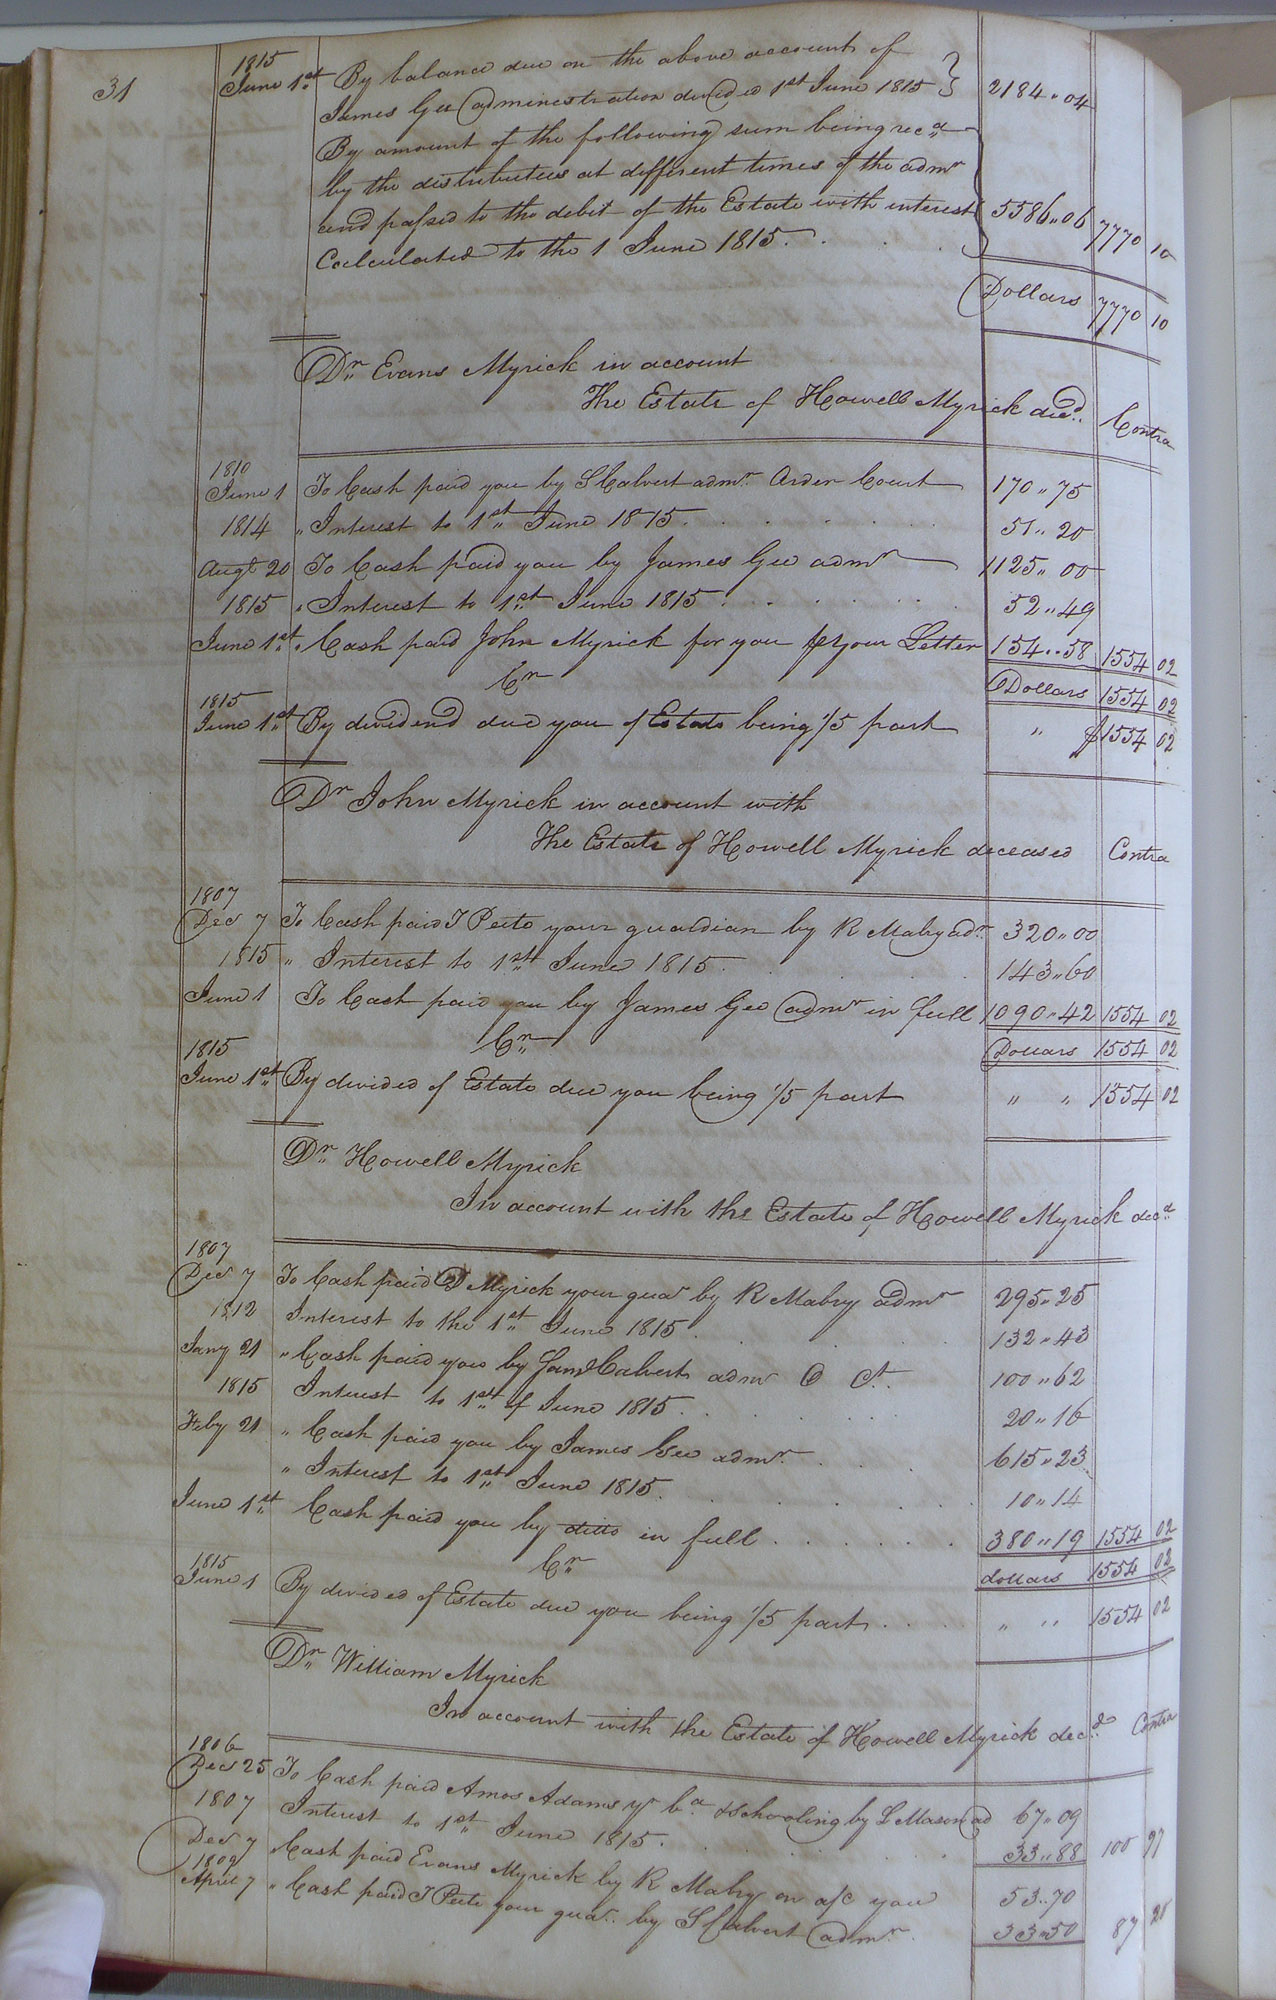 31
1815
June 1st By balance due on the above account of
James Gee administration divided 1st June 1815 } 2184 " 04
By amount of the following sum being recd
by the distributees at different times of the admr
and passed to the debit of the Estate with interest 5586 " 06 7770 10
Calculated to the 1 June 1815.
Dollars 7770 10
Dr Evans Myrick in account
The Estate of Howell Myrick decd. Contra
1810
June 1 To Cash paid you by S Calvert admr Order Court 170 " 75
1814 " Interest to 1st June 1815. 51 " 20
Augt 20 To Cash paid you by James Gee admr 1125 " 00
1815 " Interest to 1st June 1815 52 " 49
June 1st " Cash paid John Myrick for you pr your Letter 154 " 58 1554 02
Cr Dollars 1554 02
1815
June 1st By dividend due you of Estate being 1/5 part " $1554 02
Dr John Myrick in account with
The Estate of Howell Myrick deceased Contra
1807
Decr 7 To Cash paid J Peete your guardian by R Mabry adr 320 " 00
1815 " Interest to 1st June 1815. 143 " 60
June 1 To Cash paid you by James Gee admr in full 1090 " 42 1554 02
Cr Dollars 1554 02
1815
June 1st By divided of Estate due you being 1/5 part " " 1554 02
Dr Howell Myrick
In account with the Estate of Howell Myrick decd
1807
Decr 7 To Cash paid Myrick your guar by R Mabry admr 295 " 25
1812 Interest to the 1st June 1815. 132 " 43
Jany 21 " Cash paid you by Saml Calvert admr O Ct. 100 " 62
1815 Interest to 1st of June 1815. 20 " 16
Feby 21 " Cash paid you by James Gee admr 615 " 23
" Interest to 1st June 1815. 10 " 14
June 1st Cash paid you by ditto in full 380 " 19 1554 02
Cr dollars 1554 02
1815
June 1 By divided of Estate due you being 1/5 part " " 1554 02
Dr William Myrick
In account with the Estate of Howell Myrick decd Contra
1806
Decr 25 To Cash paid Amos Adams yr bd & schooling by L Mason ad 67 " 09
1807 Interest to 1st June 1815. 33 " 88 100 97
Decr 7 Cash paid Evans Myrick by R Mabry on a/c you 53 " 70
1809
April 7 " Cash paid J Peete your guar. by S Calvert admr. 33 " 50 87 20